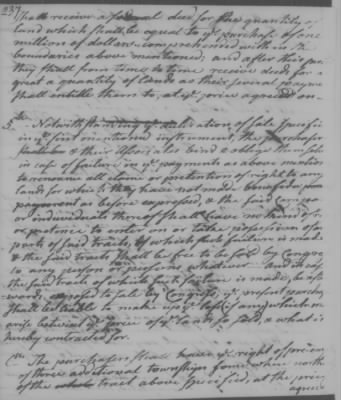 237
shall receive a federal deed for the quantity of
land which shall be equal to ye purchase of one
million of dollars comprehended within the
boundaries above mentioned; and after this pr
they shall from time to time receive deeds for s
great a quantity of lands as their several payme
shall entitle them to, at ye price agreed on.
5th Notwithstanding ye declaration of sale specifi
in ye first mentioned instrument, the purchaser
& their Associates bind & oblige themselv
in case of failure in ye payments as above mention
to renounce all claim or pretention of right to any
lands for which they have not made bonafide
payment as before expressed, & the said company
or individuals thereof shall have no kind of r
or pretence to enter on or take possession of a
parts of said tracts, of which such failure is made
& the said tracts shall be free to be sold by Congre
to any person or persons whatever. And if
the said tracts of which such failure is made, be aft
wards exposed to sale by Congress, ye present purch
shall be liable to make up ye loss if any which m
arise between ye price of ye lands so sold, & what is
hereby contracted for.
The purchasers shall have ye right of pre'em
of three additional townships some where north
of the tract above specified, at the price
agreed